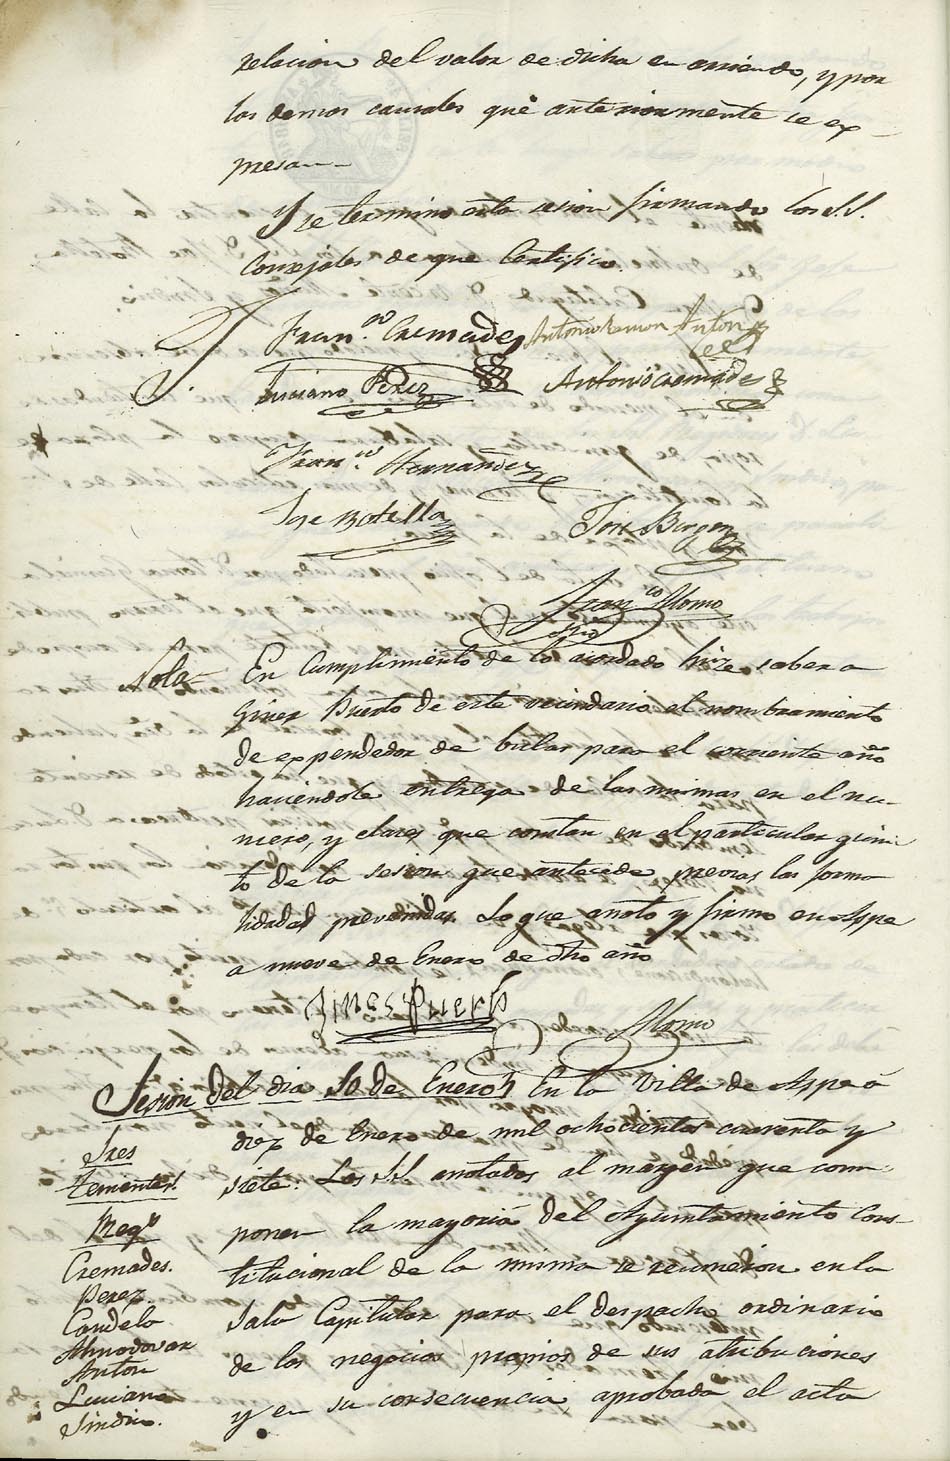 relacion del valor de dicha en arriendo, y por
los demas causales que anteriormente se ex-
presan.
Y se termino esta sesion firmando los S.S.
Concejales de que Certifico.
Fran.co Cremades Antonio Ramon Anton
Luciano Perez Antonio Cremades
Fran.co Hernandez
Jose Botella Jose
Fran.co Alonso
Srio
Nota En Cumplimiento de lo acordado hize saber a
Gines Puerto de este vecindario el nombramiento
de expendedor de bulas para el corriente año
haciendole entrega de las mismas en el nu-
mero, y clases que constan en el particular quin-
to de la sesion que antecede previas las forma
lidades prevenidas. Lo que anoto y firmo en Aspe
a nueve de Enero de dho año
Gines Puerto
Alonso
Sesion del dia 10 de Enero En la Villa de Aspe á
diez de Enero de mil ochocientos cuarenta y
siete. Los S.S. anotados al margen que com-
ponen la mayoria del Ayuntamiento Cons-
titucional de la misma se reunieron en la
Sala Capitular para el despacho ordinario
de los negocios propios de sus atribuciones
y en su consecuencia aprobada el acta
Sres
Tenientes
Reg.s
Cremades.
Perez.
Candela
Almodovar
Anton
Luciano
Sindico.